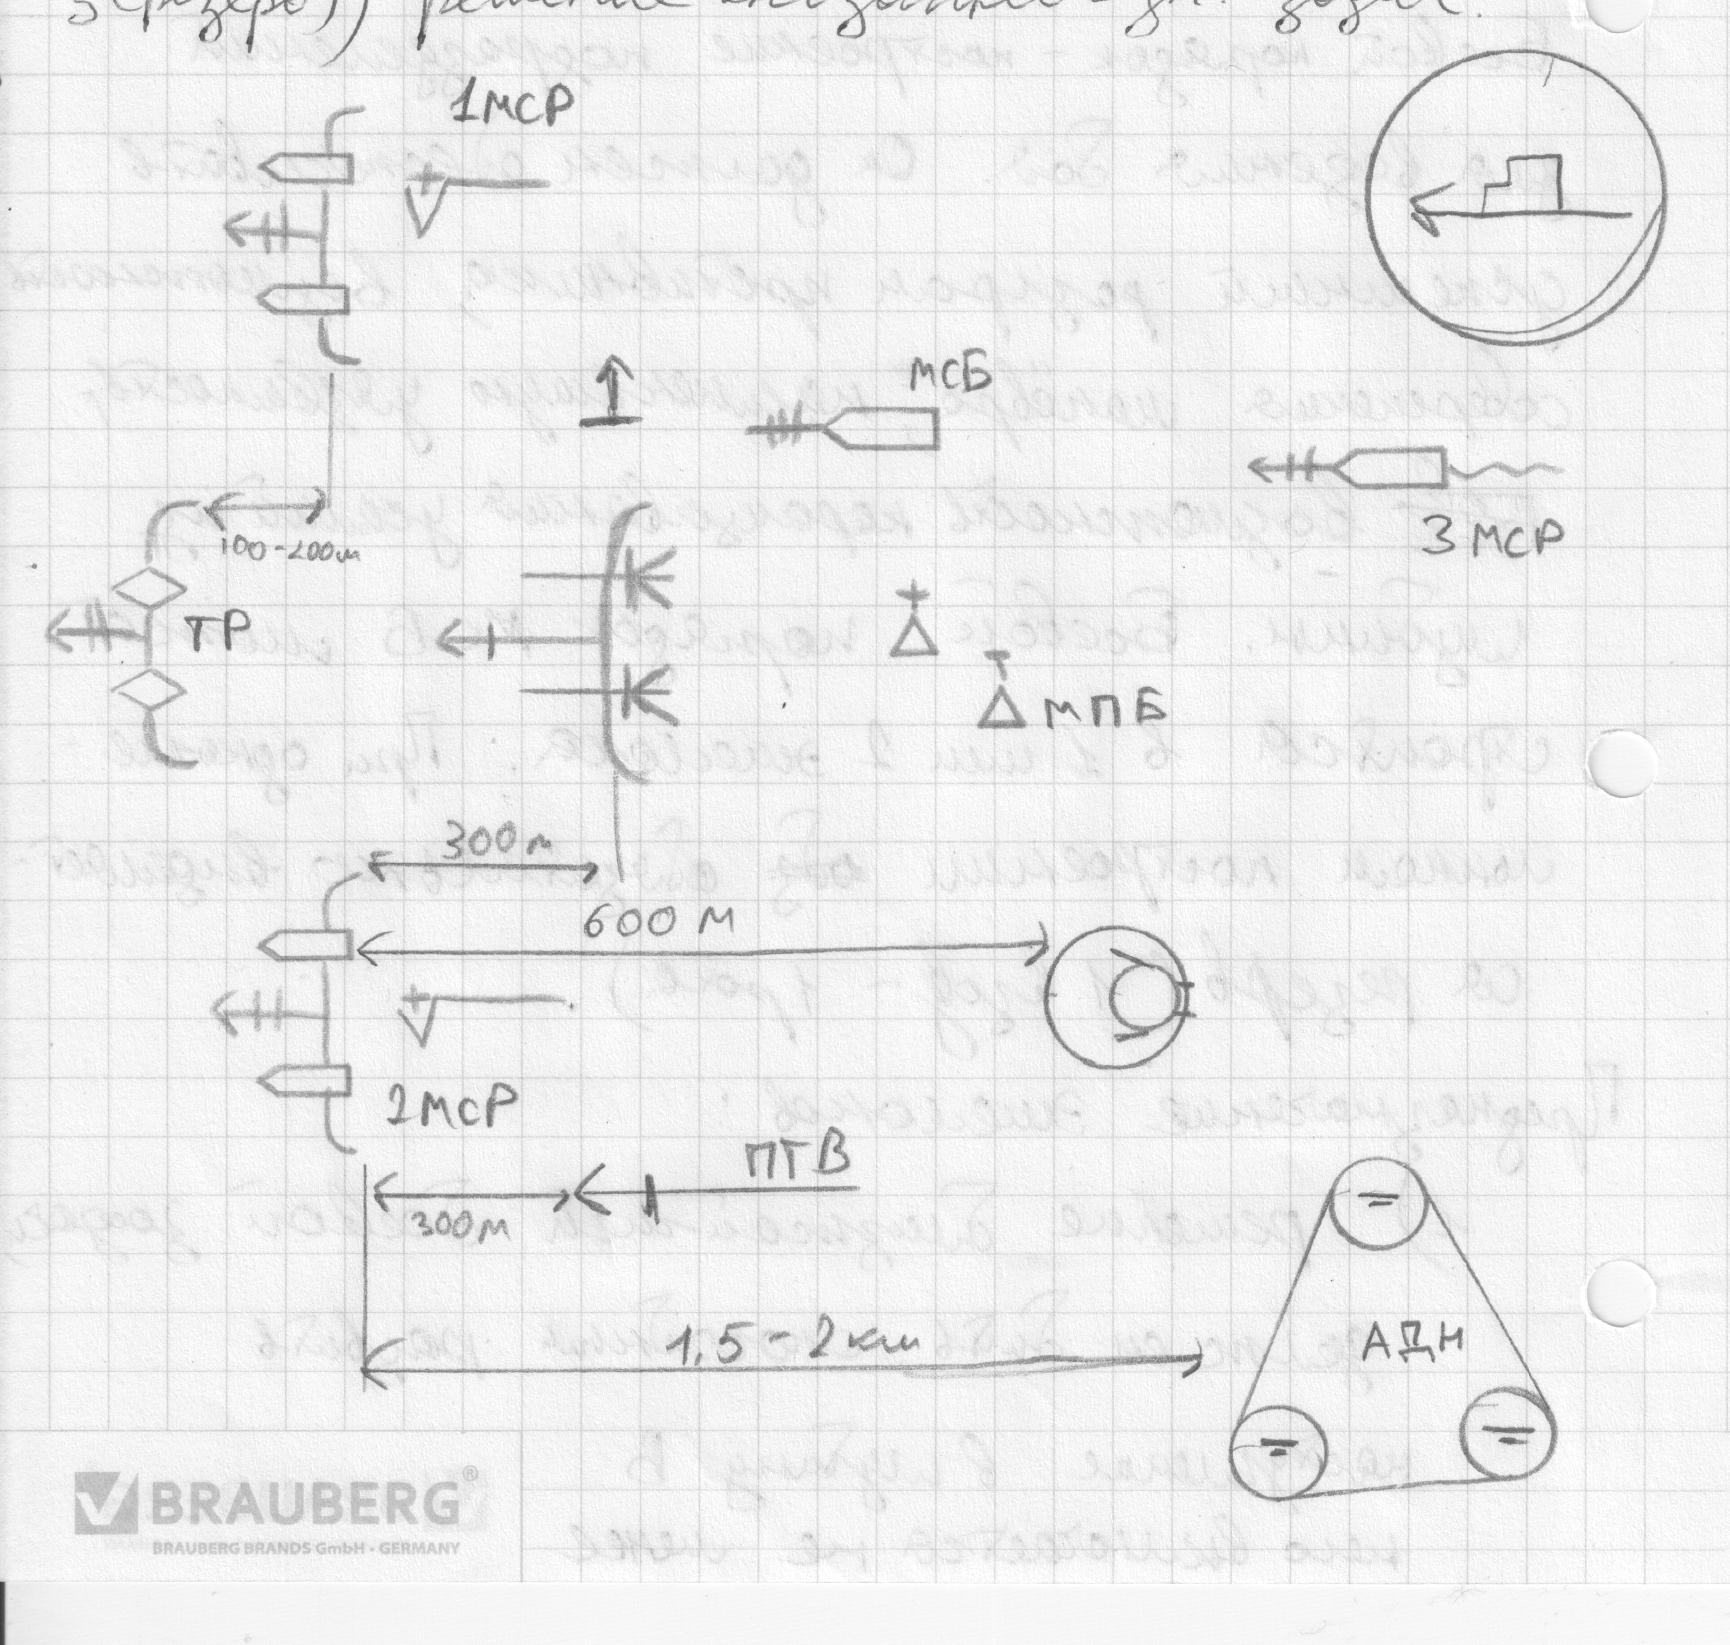 1МСР
МСБ
3 МСР
100-200м
ТР
МПБ
300м
600 М
2МСР
ПТВ
300м
1,5-2км
АДН
BRAUBERG®
BRAUBERG BRANDS GmbH · GERMANY